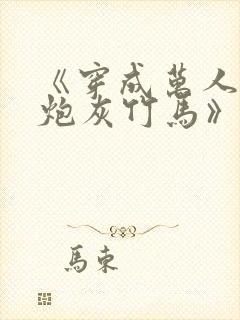 《穿成萬人
炮灰竹馬》
馬束